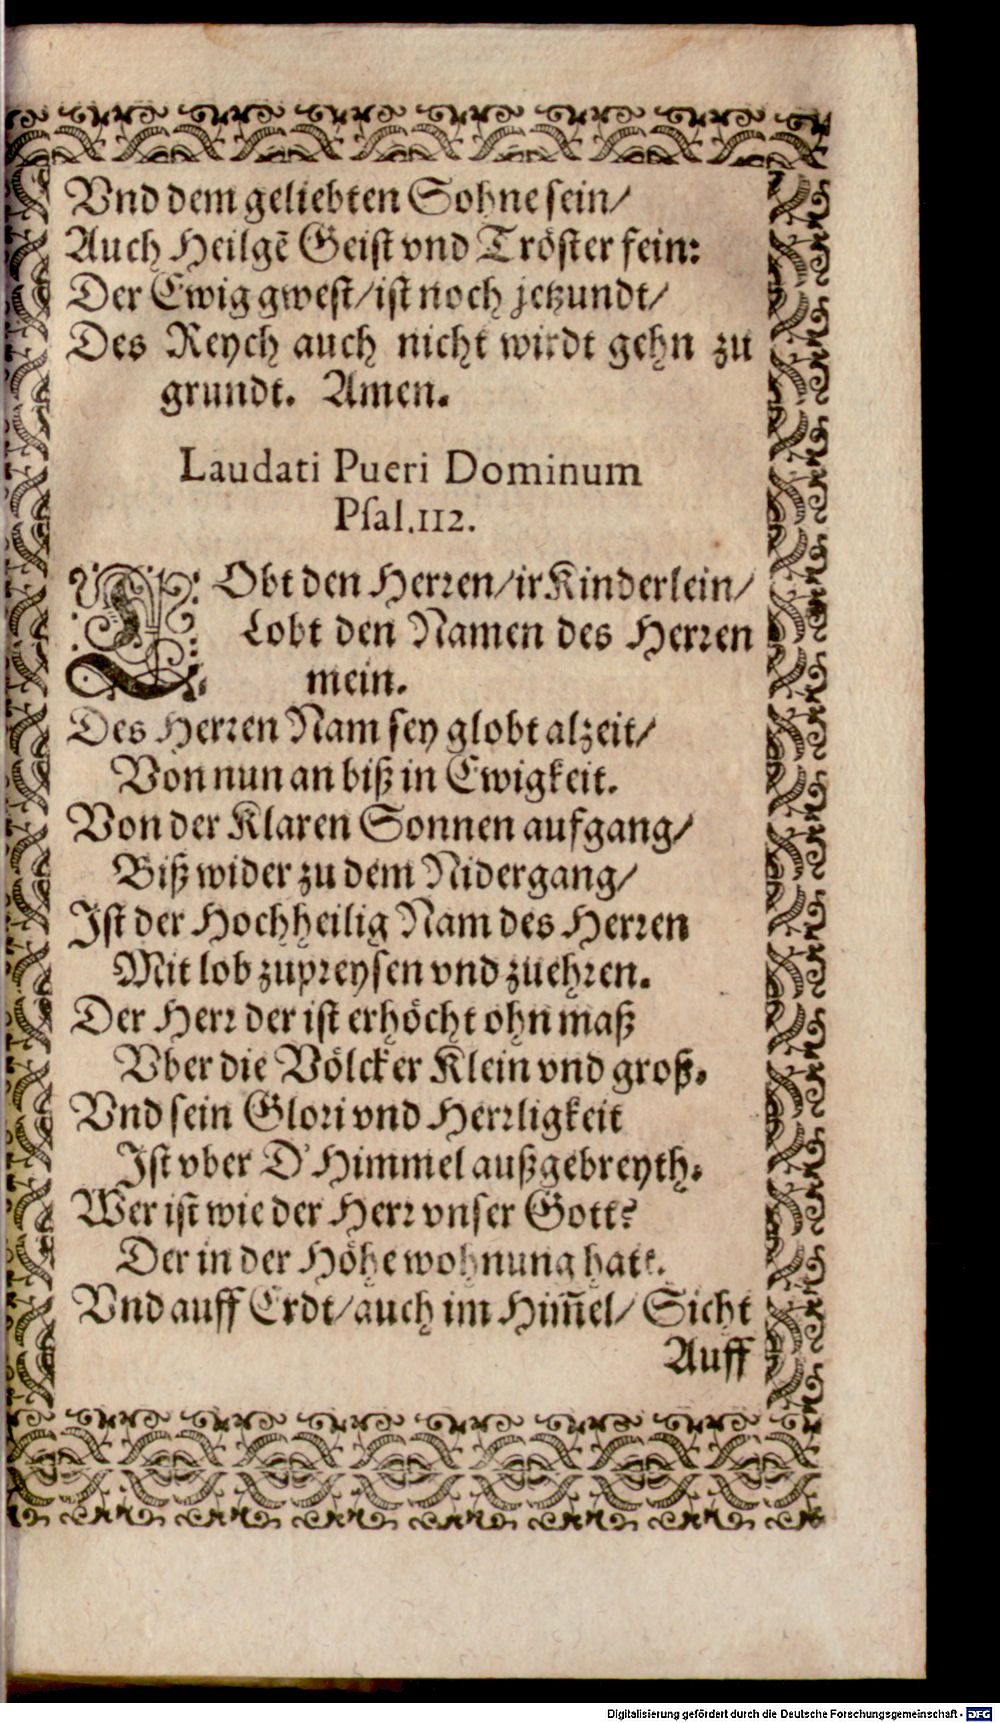 Vnd dem geliebten Sohne sein/
Auch Heilgē Geist vnd Tröster fein:
Der Ewig gwest/ist noch jetzundt/
Des Reych auch nicht wirdt gehn zu
grundt. Amen.
Laudati Pueri Dominum
Psal.112.
LObt den Herren/ir Kinderlein/
Lobt den Namen des Herren
mein.
Des Herren Nam sey globt alzeit/
Von nun an biß in Ewigkeit.
Von der Klaren Sonnen aufgang/
Biß wider zu dem Nidergang/
Ist der Hochheilig Nam des Herren
Mit lob zupreysen vnd zuehren.
Der Herr der ist erhöcht ohn maß
Vber die Völcker Klein vnd groß.
Vnd sein Glori vnd Herrligkeit
Ist vber D' Himmel außgebreyth.
Wer ist wie der Herr vnser Gott?
Der in der Höhe wohnung hatt.
Vnd auff Erdt/auch im Him̄el/ Sicht
Auff
Digitalisierung gefördert durch die Deutsche Forschungsgemeinschaft - DFG